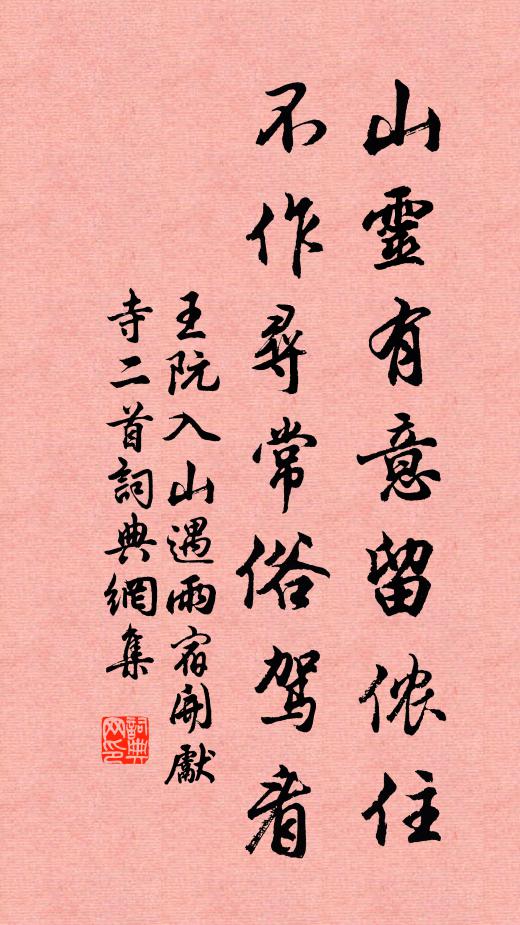 山靈有意留侬住
不作尋常俗驾看
王阮入山遇雨宿開獻
寺二首詞典網集
詞典网印